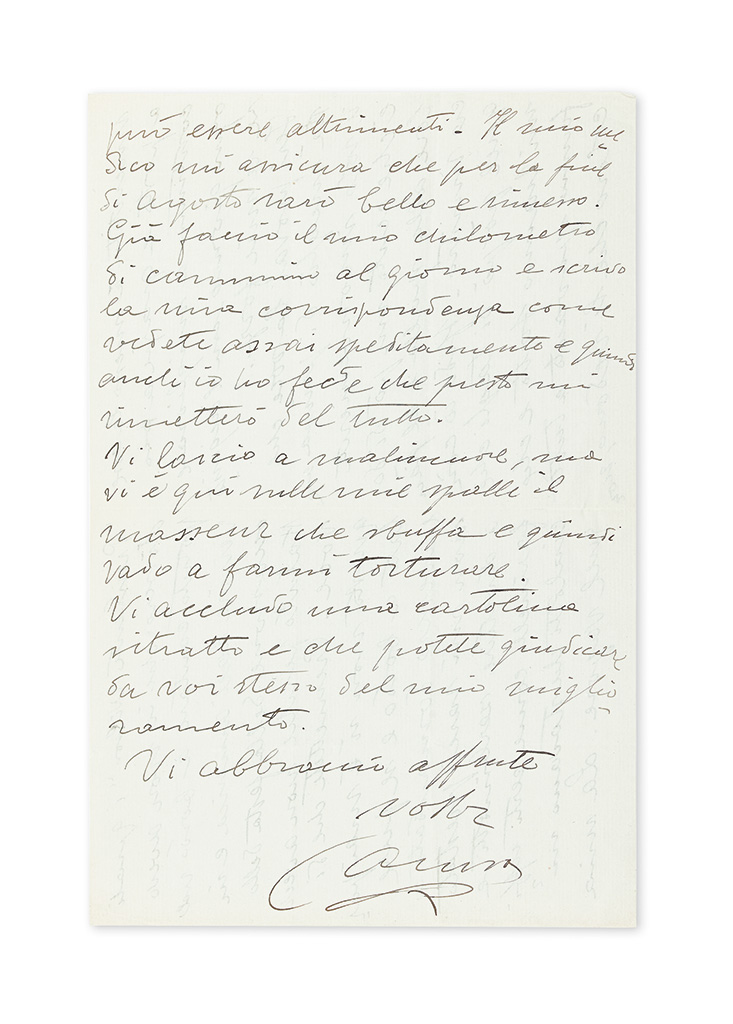 può essere altrimenti - Il mio me
dico mi assicura che per la fine
di Agosto sarò bello e rimesso.
Già faccio il mio chilometro
di cammino al giorno e scrivo
la mia corrispondenza come
vedete assai speditamente e quindi
anch'io ho fede che presto mi
rimetterò del tutto.
Vi lascio a malincuore, ma
vi è qui sulle mie spalle il
masseur che sbuffa e quindi
vado a farmi torturare.
Vi accludo una cartolina
ritratto e che potete giudicare
da voi stesso del mio miglio
ramento.
Vi abbraccio affmte
vostr
Caruso